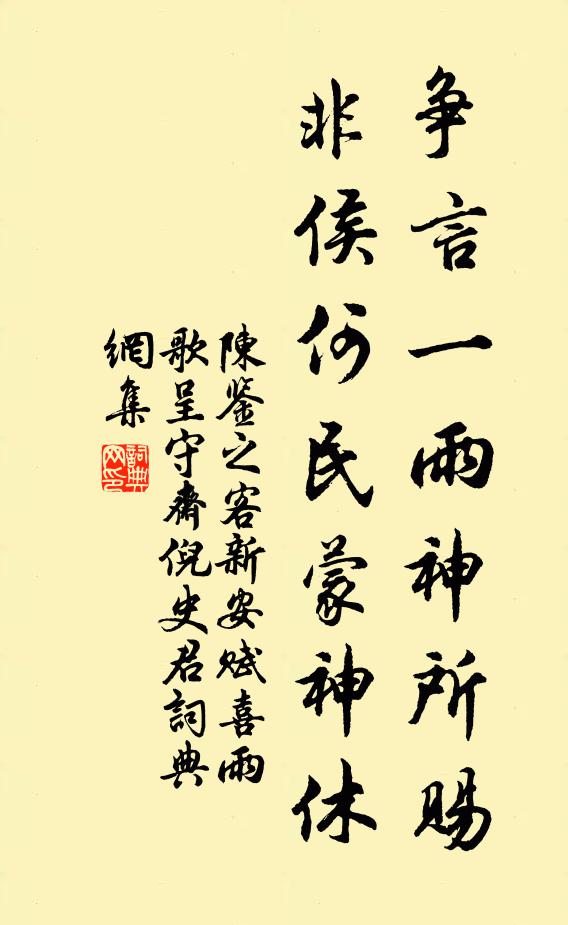 争言一雨神所賜
非侯何民蒙神休
陳鉴之客新安賦喜雨
歌呈守齋倪史君詞典
網集
詞典網印